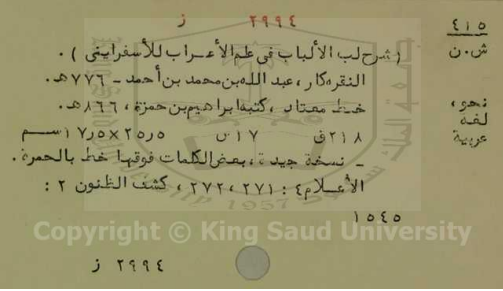 ٢٩٩٤ ز
٤١٥
ش.ن
( شرح لب الألباب في علم الأعراب للأسفرايني ) .
النقره كار ، عبد الله بن محمد بن أحمد - ٧٧٦ هـ .
خط معتاد ، كتبه ابراهيم بن حمزة ، ٨٦٦ هـ .
نحو ،
لغة
عربية
٢١٨ ق ١٧ س ٢٥٫٥×١٧٫٥ سم
- نسخة جيدة ، بعض الكلمات فوقها خط بالحمرة .
الأعلام ٤ : ٢٧١ ، ٢٧٢ ، كشف الظنون ٢ :
١٥٤٥
1957
Copyright © King Saud University
٢٩٩٤ ز